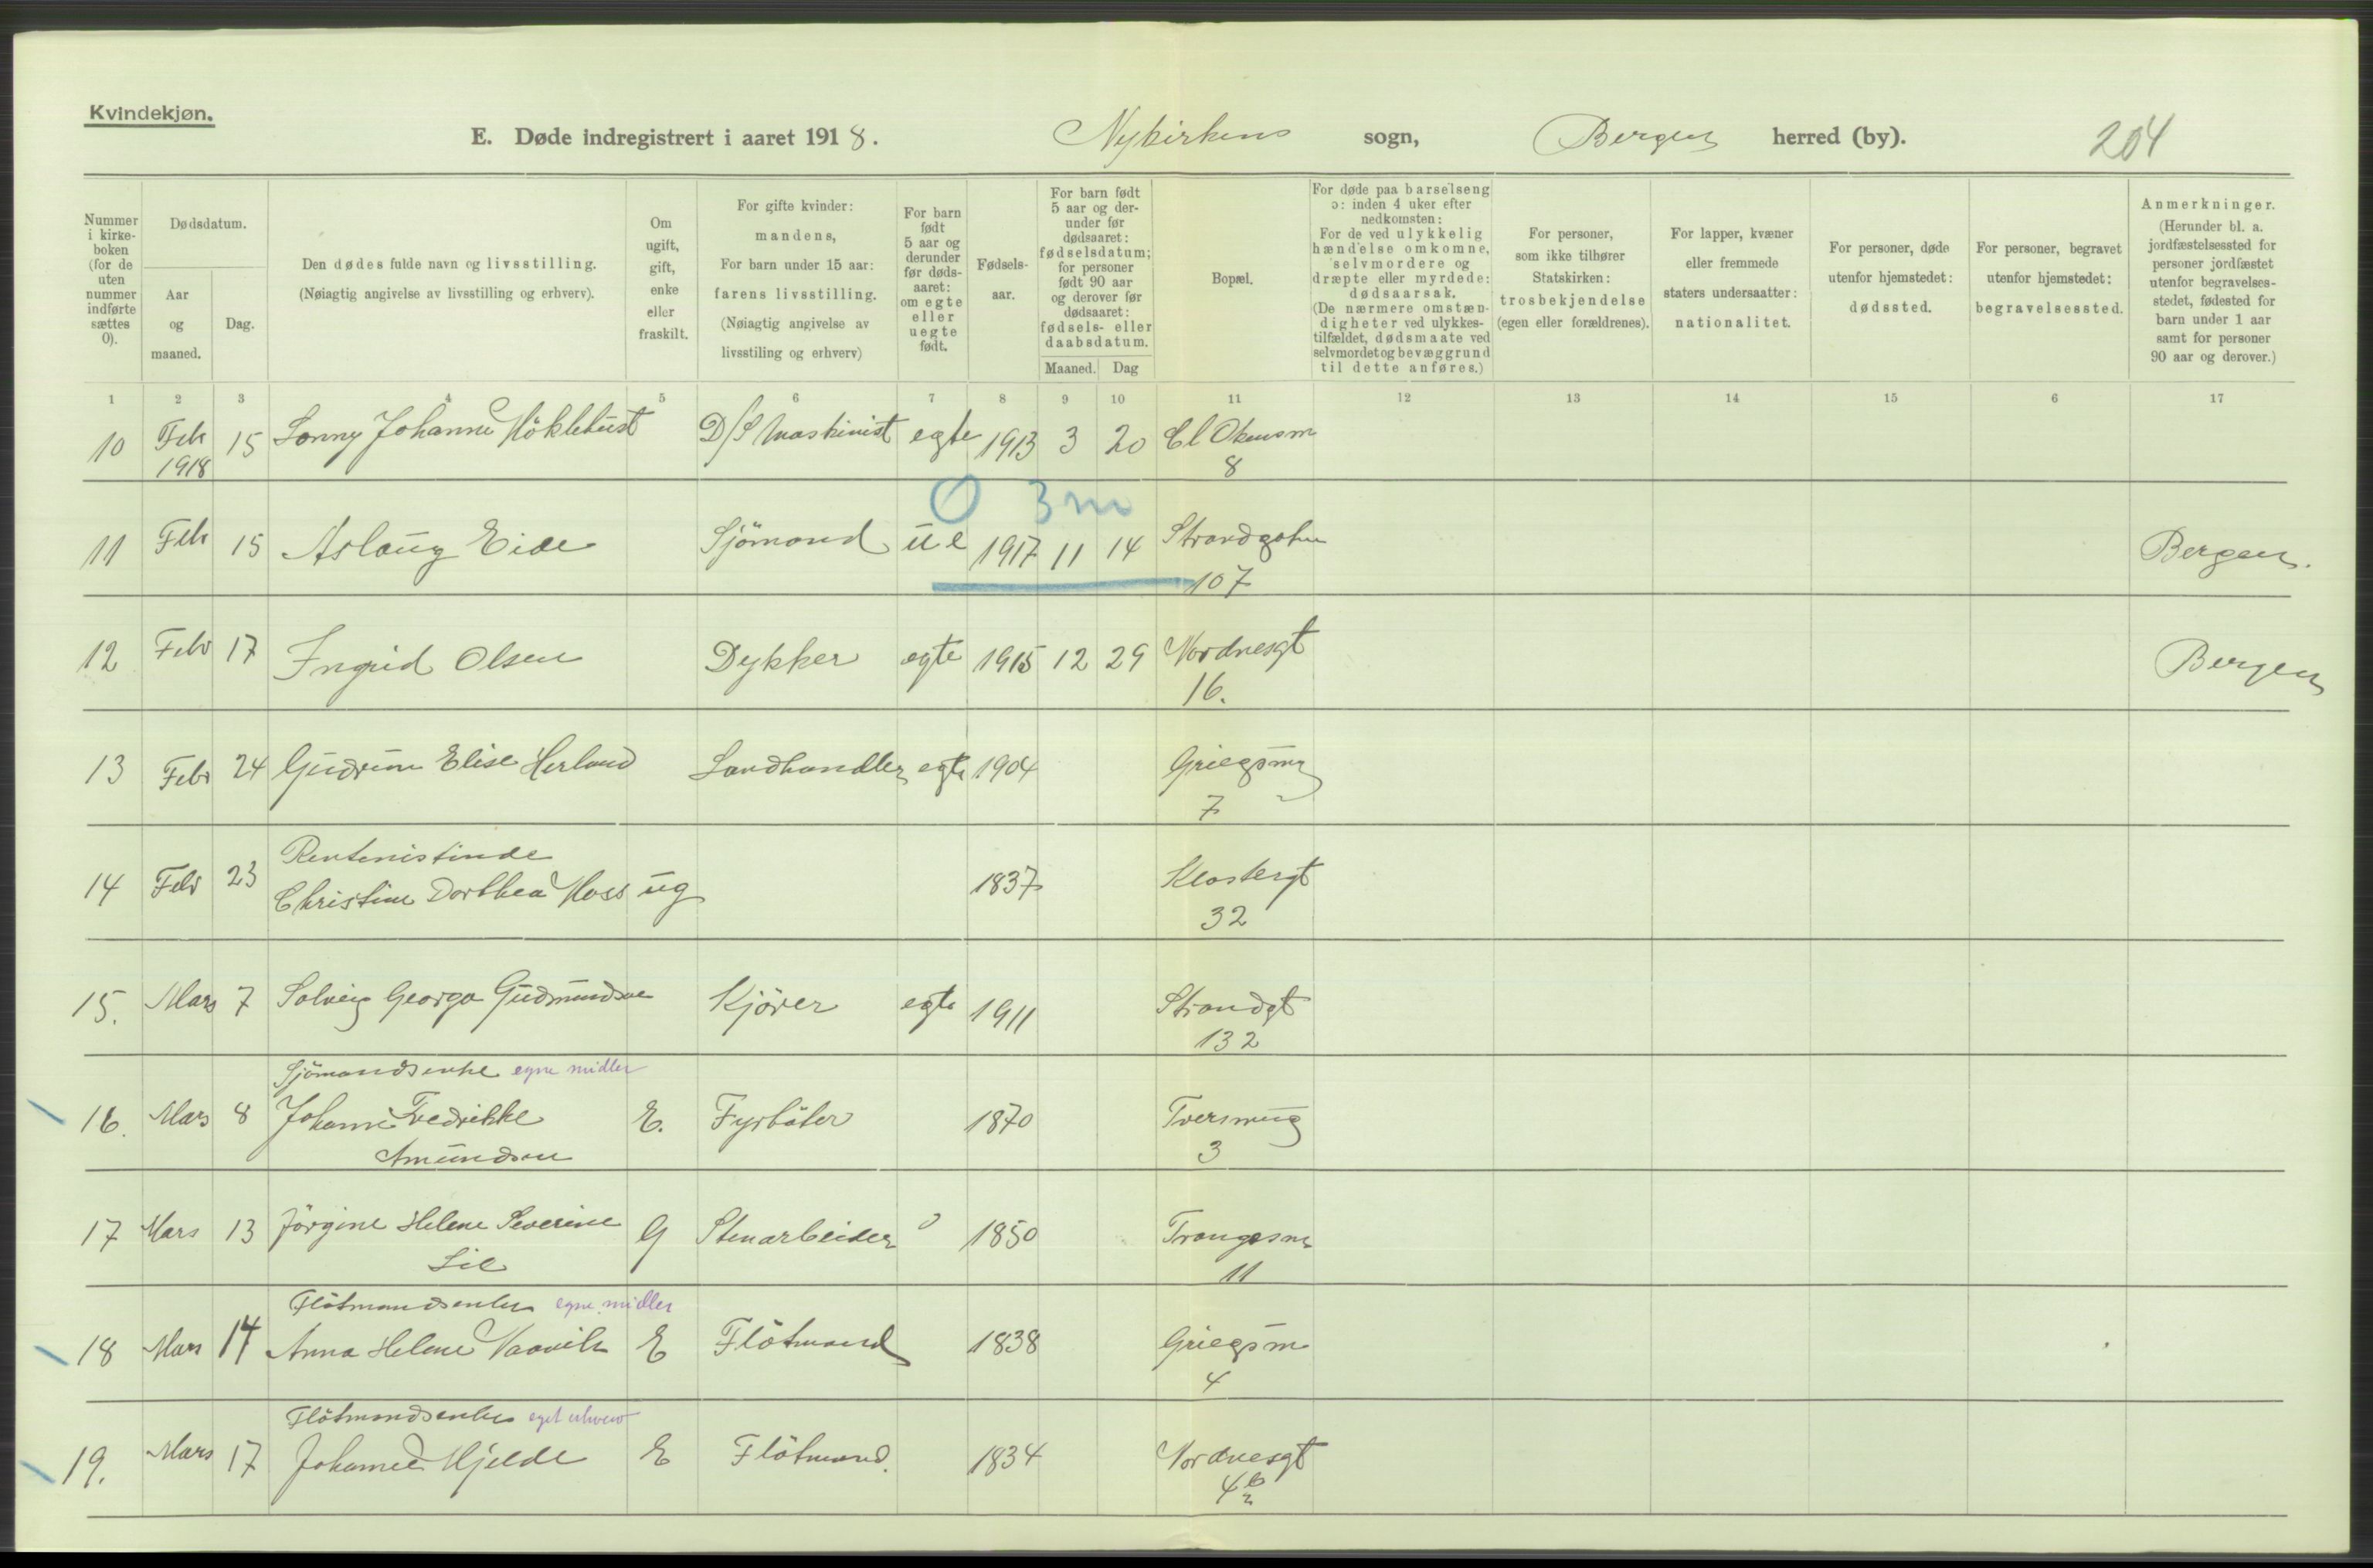 Kvindekjøn.
E. Døde indregistrert i aaret 1918. Nykirkens sogn, Bergen herred (by). 204
Nummer i kirke- boken (for de uten nummer indførte sættes 0).
Dødsdatum.
Aar og maaned.
Dag.
Den dødes fulde navn og livsstilling.
(Nøiagtig angivelse av livsstilling og erhverv).
Om ugift, gift, enke eller fraskilt.
For gifte kvinder: mandens,
For barn under 15 aar: farens livsstilling.
(Nøiagtig angivelse av livsstiling og erhverv)
For barn født 5 aar og derunder før døds- aaret: om egte eller uegte født.
Fødsels- aar.
For barn født 5 aar og der- under før dødsaaret: fødselsdatum; for personer født 90 aar og derover før dødsaaret: fødsels- eller daabsdatum.
Maaned. Dag
Bopæl.
For døde paa barselseng ɔ: inden 4 uker efter nedkomsten:
For de ved ulykkelig hændelse omkomne, selvmordere og dræpte eller myrdede: dødsaarsak.
(De nærmere omstæn- digheter ved ulykkes- tilfældet, dødsmaate ved selvmordet og bevæggrund til dette anføres.)
For personer, som ikke tilhører Statskirken: trosbekjendelse (egen eller forældrenes).
For lapper, kvæner eller fremmede staters undersaatter: nationalitet.
For personer, døde utenfor hjemstedet: dødssted.
For personer, begravet utenfor hjemstedet: begravelsessted.
Anmerkninger.
(Herunder bl. a. jordfæstelsessted for personer jordfæstet utenfor begravelses- stedet, fødested for barn under 1 aar samt for personer 90 aar og derover.)
1 2 3 4 5 6 7 8 9 10 11 12 13 14 15 6 17
10 Feb 15 Sonny Johanne Høklehust D/S Maskinist egte 1913 3 20
1918 8
0 3 m
11 Feb 15 Aslaug Eide Sjömand ue 1917 11 14 Strandgaten Bergen.
107
12 Feb 17 Ingrid Olsen Dykker egte 1915 12 29 Nordnesgt Bergen
16.
13 Febr 24 Gudrun Elise Herland Landhandler egte 1904 Griegsmg
7
Rentenistinde
14 Feb 23 Christine Dorthea Moss ug 1837 Klostergt
32
15. Mars 7 Solveig Georga Gudmundsen Kjörer egte 1911 Strandgt
132
Sjömandsenke egne midler
16. Mars 8 Johanne Fredrikke E. Fyrböter 1870 Tversmug
Amundsen 3
17 Mars 13 Jörgine Helene Severine G Stenarbeider 0 1850 Trangesm
Lie 11
Flötmandsenke egne midler
18 Mars 14 Anna Helene Vaavik E Flötmand 1838 Griegsm
4
Flötmandsenke eget erhverv
19. Mars 17 Johanne Hjelde E Flötmand. 1834 Nordnesgt
4 b